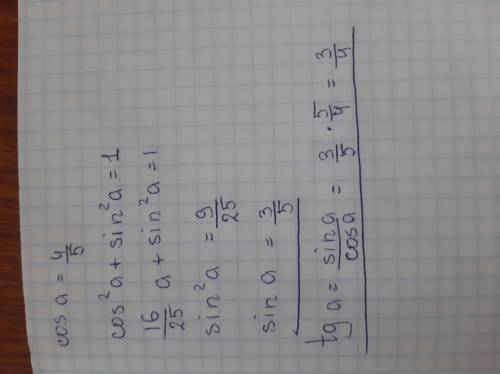 cos a = 4/5
cos²a + sin²a = 1
16/25 a + sin²a = 1
sin²a = 9/25
sin a = 3/5
tg a = sin a/cos a = 3/5 · 5/4 = 3/4